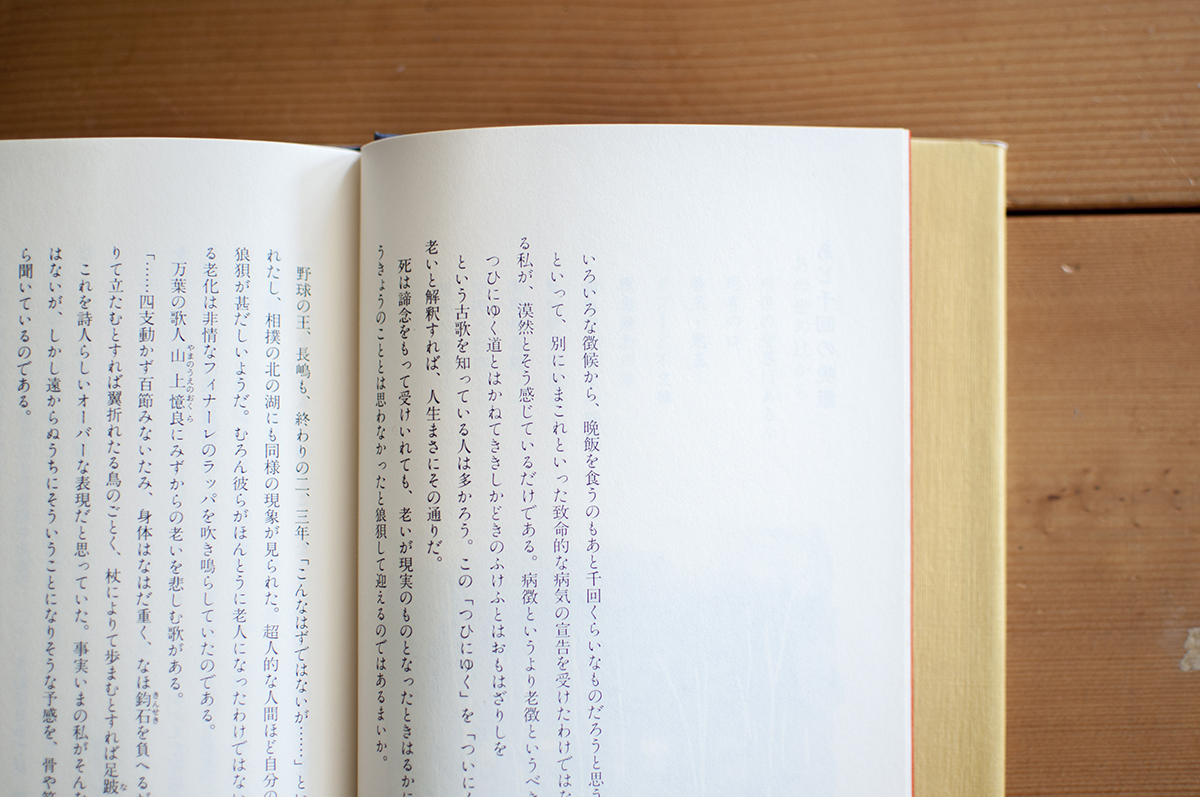 いろいろな徴候から、晩飯を食うのもあと千回くらいなものだろうと思う
といって、別にいまこれといった致命的な病気の宣告を受けたわけではな
る私が、漠然とそう感じているだけである。病徴というより老徴というべき
つひにゆく道とはかねてききしかどきのふけふとはおもはざりしを
という古歌を知っている人は多かろう。この「つひにゆく」を「ついに
老いと解釈すれば、人生まさにその通りだ。
死は諦念をもって受けいれても、老いが現実のものとなったときはるかに
うきょうのこととは思わなかったと狼狽して迎えるのではあるまいか。
野球の王、長嶋も、終わりの二、三年、「こんなはずではないが……」とい
れたし、相撲の北の湖にも同様の現象が見られた。超人的な人間ほど自分の
狼狽が甚だしいようだ。むろん彼らがほんとうに老人になったわけではない
る老化は非情なフィナーレのラッパを吹き鳴らしていたのである。
万葉の歌人山上憶良にみずからの老いを悲しむ歌がある。
やまのうえのおくら
「……四支動かず百節みないたみ、身体はなはだ重く、なほ鈞石を負へるが
きんせき
りて立たむとすれば翼折れたる鳥のごとく、杖によりて歩まむとすれば足跛
な
これを詩人らしいオーバーな表現だと思っていた。事実いまの私がそんな
はないが、しかし遠からぬうちにそういうことになりそうな予感を、骨や
ら聞いているのである。